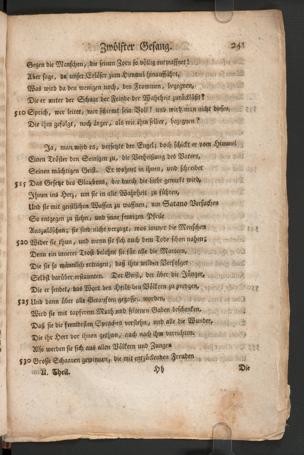 Zwölfter Gesang. 241
Gegen die Menschen, die seinen Zorn so völlig entwaffnet!
Aber sage, da unser Erlöser zum Himmel hinauffährt,
Was wird da den wenigen noch, den Frommen, begegnen,
Die er unter der Schaar der Feinde der Wahrheit zurückläßt?
510 Sprich, wer leitet, wer schirmt sein Volk? und wird man nicht diesen,
Die ihm gefolgt, noch ärger, als wie ihm selber, begegnen?
Ja, man wird es, versetzte der Engel; doch schickt er vom Himmel
Einen Tröster den Seinigen zu, die Verheißung des Vaters,
Seinen mächtigen Geist. Er wohnet in ihnen, und schreibet
515 Das Gesetze des Glaubens, der durch die Liebe gewirkt wird,
Ihnen ins Herz, um sie in alle Wahrheit zu führen,
Und sie mit geistlichen Waffen zu waffnen, um Satans Versuchen
So entgegen zu stehn, und seine feurigen Pfeile
Auszulöschen; sie sind nicht verzagt, was immer die Menschen
520 Wider sie thun, und wenn sie sich auch dem Tode sehen nahen;
Denn ein innerer Trost belohnt sie für alle die Martern,
Die sie so männlich ertragen, daß ihre wilden Verfolger
Selbst darüber erstaunen. Der Geist, der über die Jünger,
Die er sendet, das Wort den Heiden den Völkern zu predigen,
525 Und dann über alle Getauften gegossen worden,
Wird sie mit tapferem Muth und seltenen Gaben beschenken,
Daß sie die fremdesten Sprachen verstehn, und alle die Wunder,
Die ihr Herr vor ihnen gethan, auch nach ihm verrichten.
Also werden sie sich aus allen Völkern und Zungen
530 Große Schaaren gewinnen, die mit entzückenden Freuden
II. Theil. Hh Die